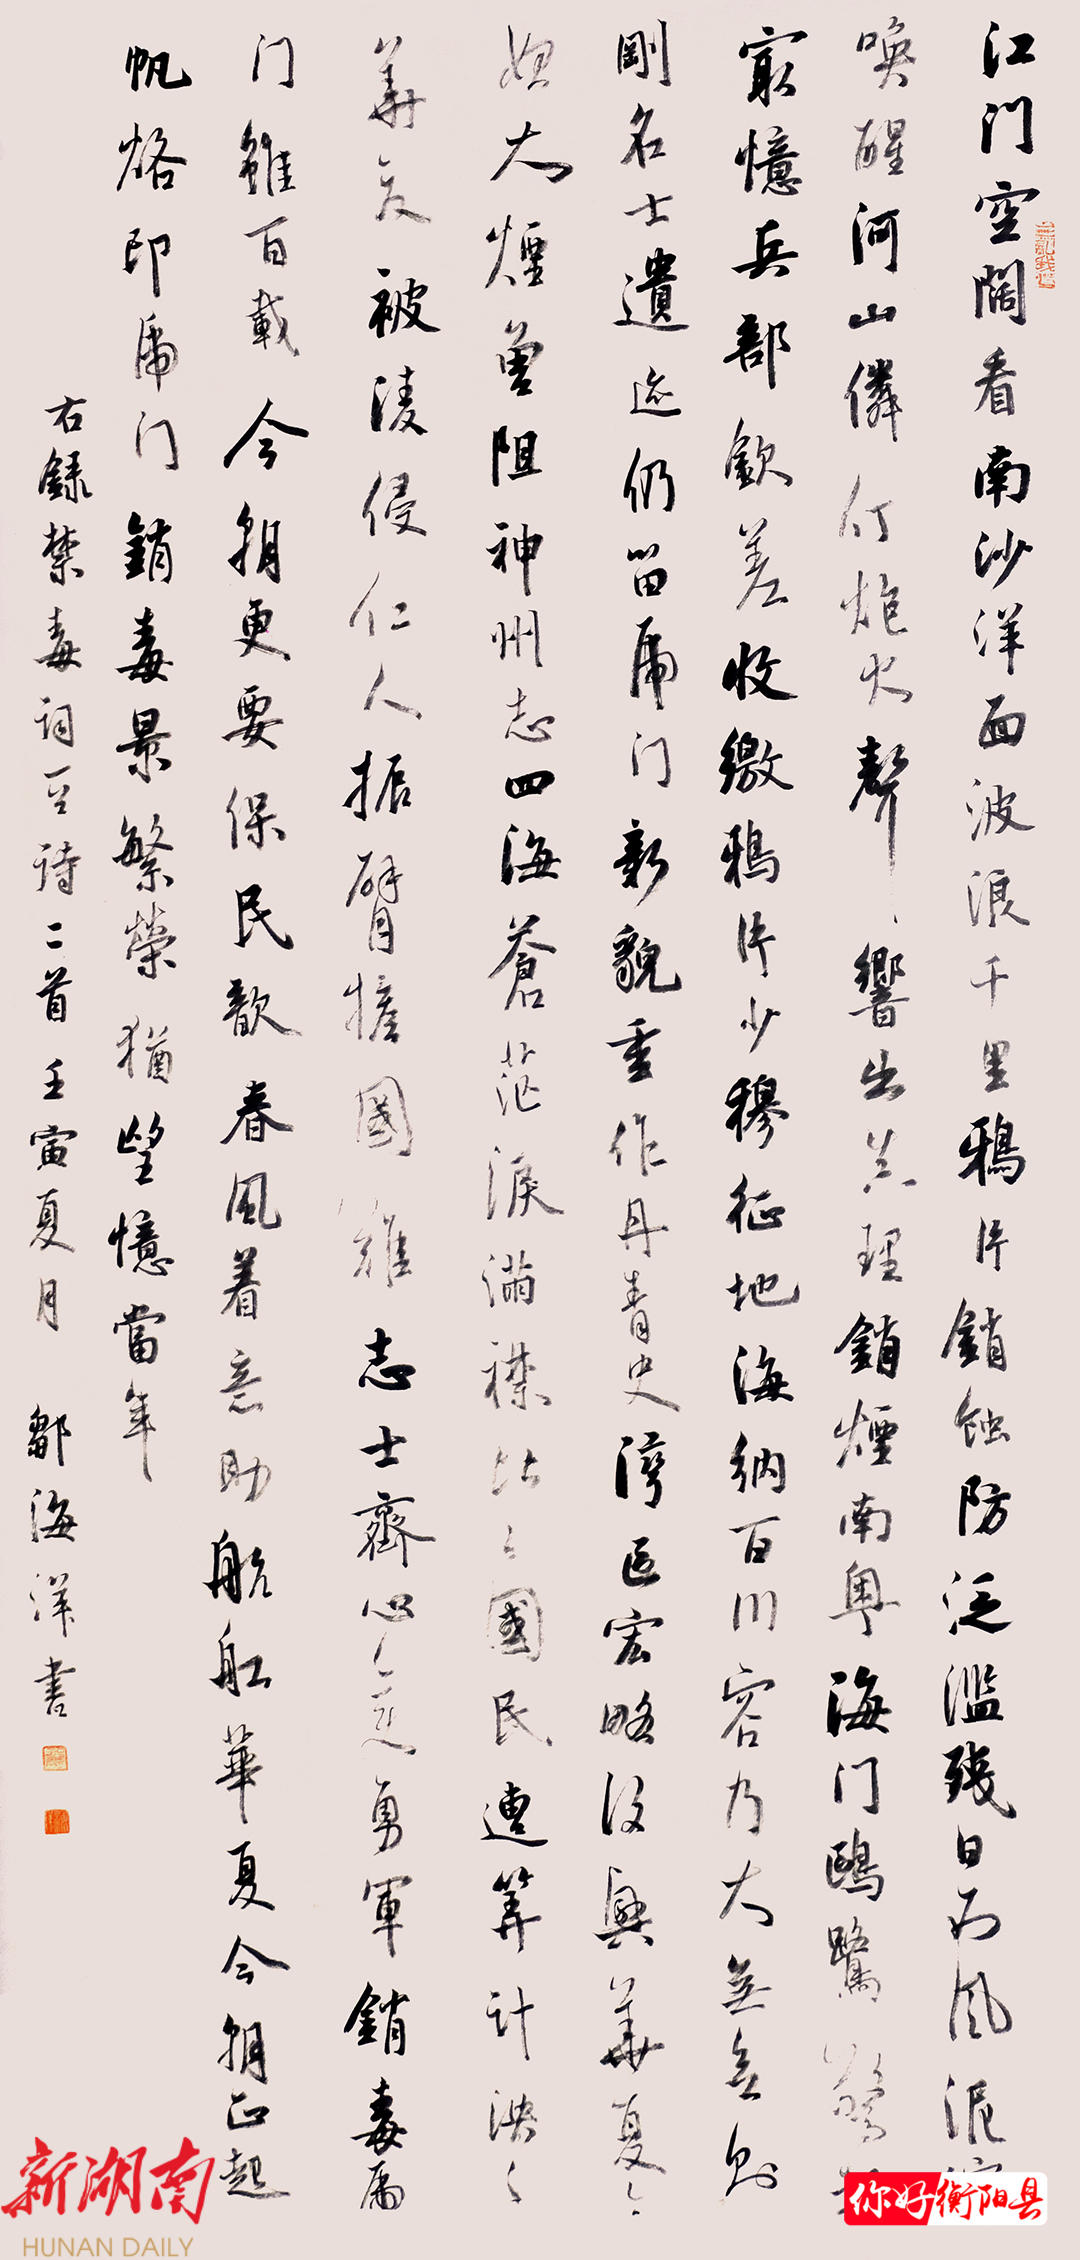 江门空阔看南沙洋面波浪千里鸦片销蚀防泛滥残日西风泥
唤醒河山怜 炮火声响出真理销烟南粤海门鸥鹭惊
最忆兵部钦差收缴鸦片少穆征地海纳百川容乃大无欲则
刚名士遗迹仍留虎门新貌重作丹青史湾区宏略复兴华夏
烟曾阻神州志四海苍茫泪满襟 国民遭算计泱泱
华夏被凌侵仁人振臂担国难志士齐心 勇军销毒虎
门虽百载今朝更要保民歌春风着意助航船华夏今朝正起
帆烙印虎门销毒景繁荣犹望忆当年
右录禁毒词 诗二首壬寅夏月 邹海洋书
新湖南
HUNAN DAILY
你好衡阳县